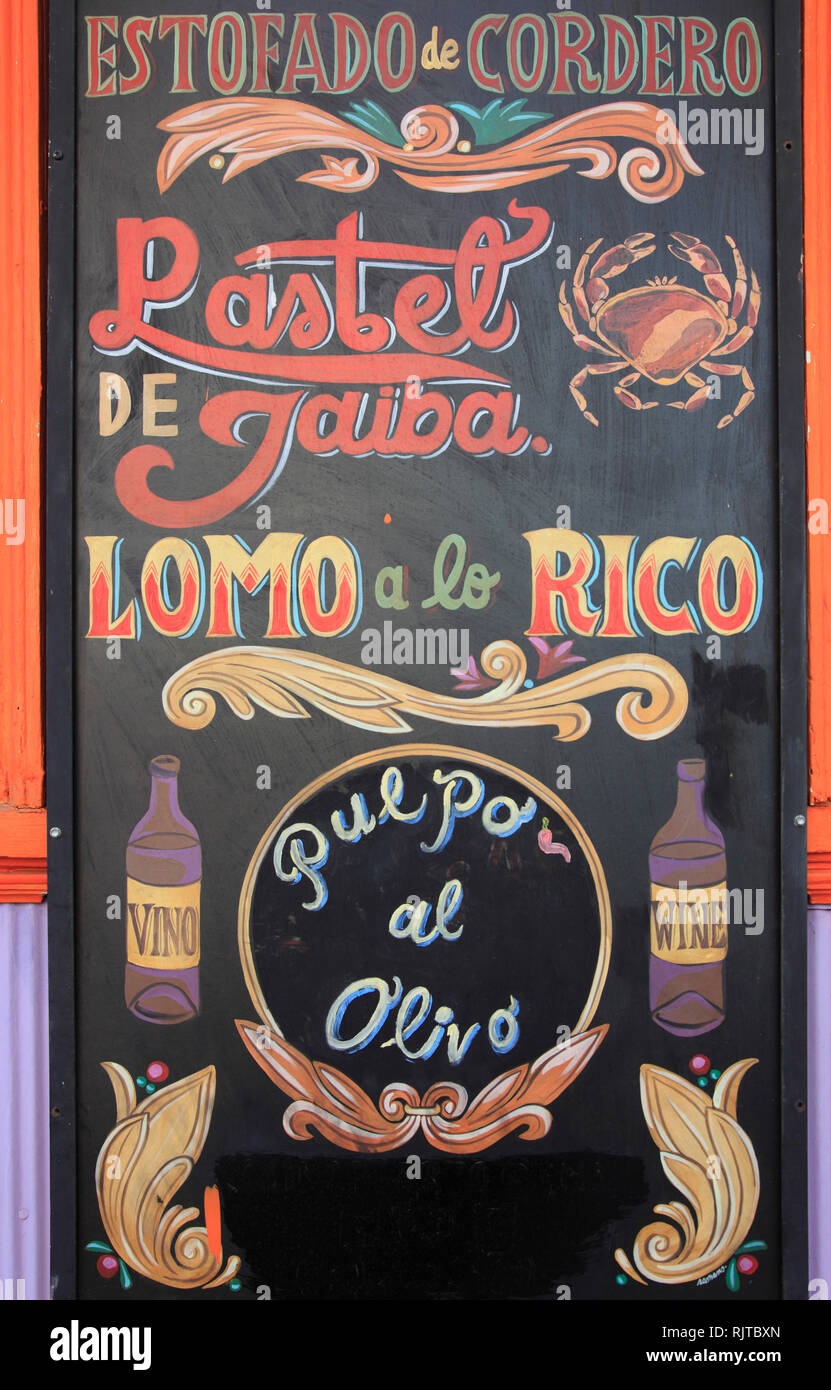 ESTOFADO de CORDERO
Pastel
DE Jaiba.
LOMO a lo RICO
Pulpo
al
Olivo
VINO
WINE
alamy
Image ID: RJTBXN
www.alamy.com